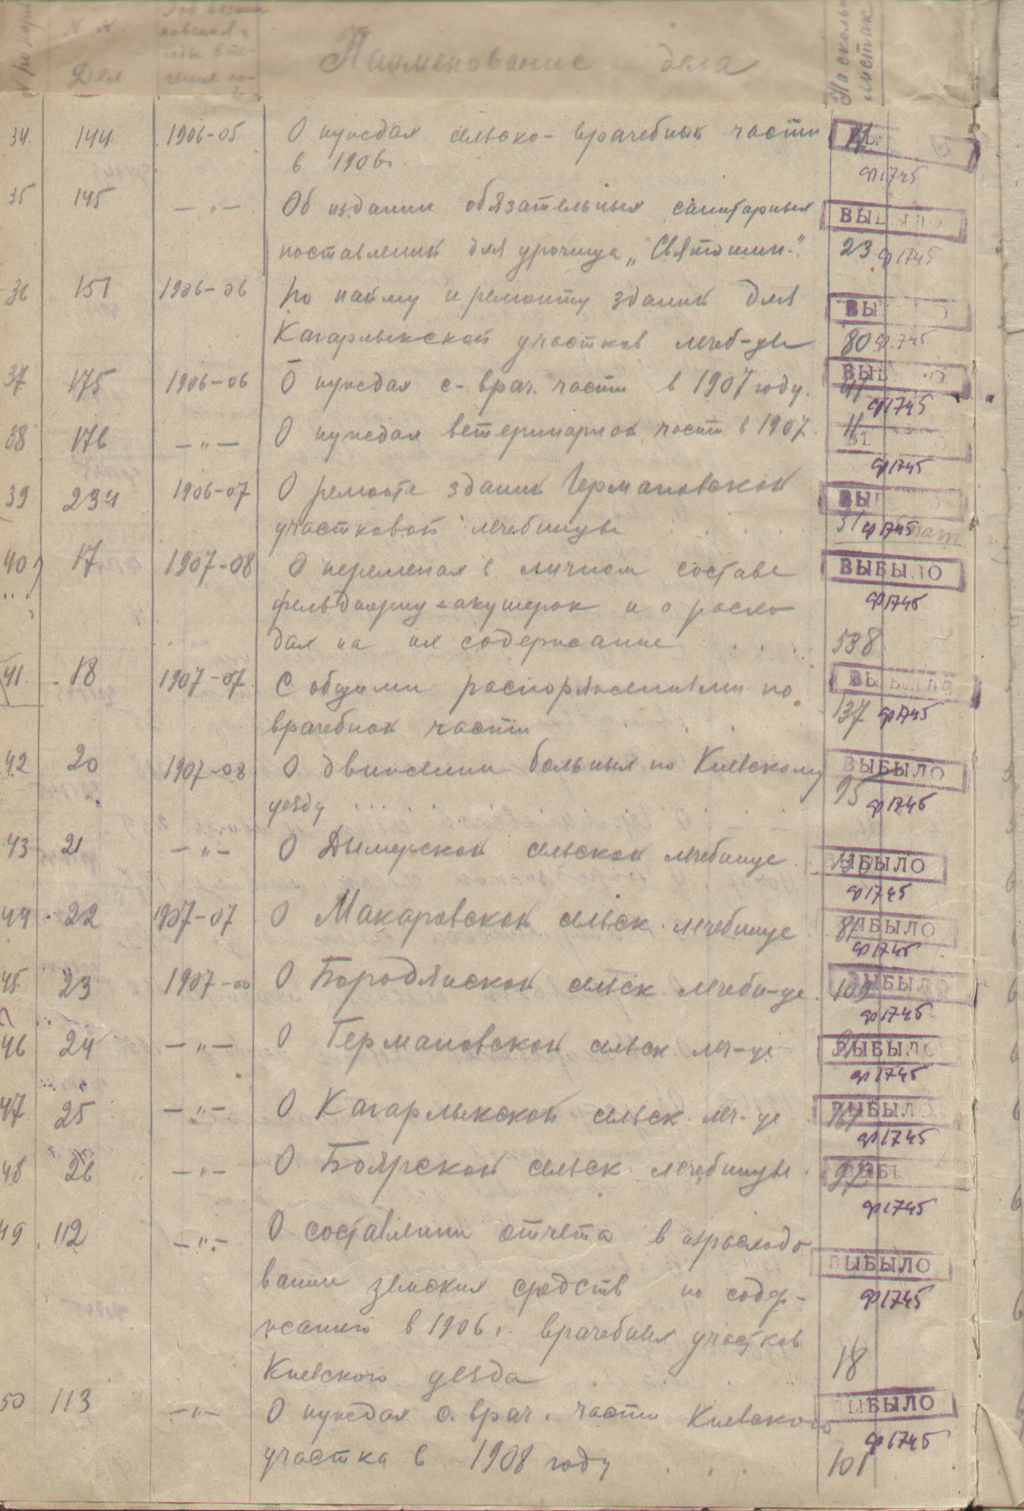 № №
Дел
Наименование дела
На сколь
листах
34. 144 1906-05 О нуждах сельско-врачебных части
в 1906г.
ф1745
35 145 — " — Об издании обязательных санитарных
ВЫБЫЛО
поставлений для урочища „Святошин."
23 ф1745
36 151 1906-06 По найму и ремонту зданий для
ВЫ
Кагарлыкской участков лечеб-цы
80 ф1745
37 175 1906-06 О нуждах с-врач. части в 1907 году.
ВЫБЫЛО
41 ф1745
38 176 — " — О нуждах ветеринарной части в 1907.
11
ф1745
39 234 1906-07 О ремонте здания Германовской
ВЫ
участковой лечебницы
31 ф1745
40 17 1907-08 О переменах в личном составе
ВЫБЫЛО
фельдшериц-акушерок и о расхо-
ф1745
дах на их содержание
538
41. 18 1907-07 С общими распоряжениями по
ВЫБЫЛО
врачебной части
137 ф1745
42 20 1907-08 О движении больных по Киевскому
ВЫБЫЛО
уезду
95 ф1745
43 21 — " — О Дымерской сельской лечебнице
ВЫБЫЛО
ф1745
44 22 1907-07 О Макаровской сельск. лечебнице
ВЫБЫЛО
ф1745
45 23 1907- О Бородянской сельск лечебн-це.
109 ВЫБЫЛО
ф1745
46 24 — " — О Германовской сельск леч-це
ВЫБЫЛО
ф1745
47 25 — " — О Кагарлыкской сельск. леч-це
ВЫБЫЛО
ф1745
48 26 — " — О Боярской сельск. лечебницы.
97
ф1745
49 112 — " — О составлении отчета в израсходо
вании земских средств по содер-
ВЫБЫЛО
ф1745
жанию в 1906г. врачебных участков
Киевского уезда
18
50 113 — " — О нуждах с. врач. части Киевского
ВЫБЫЛО
участка в 1908 году
ф1745
101